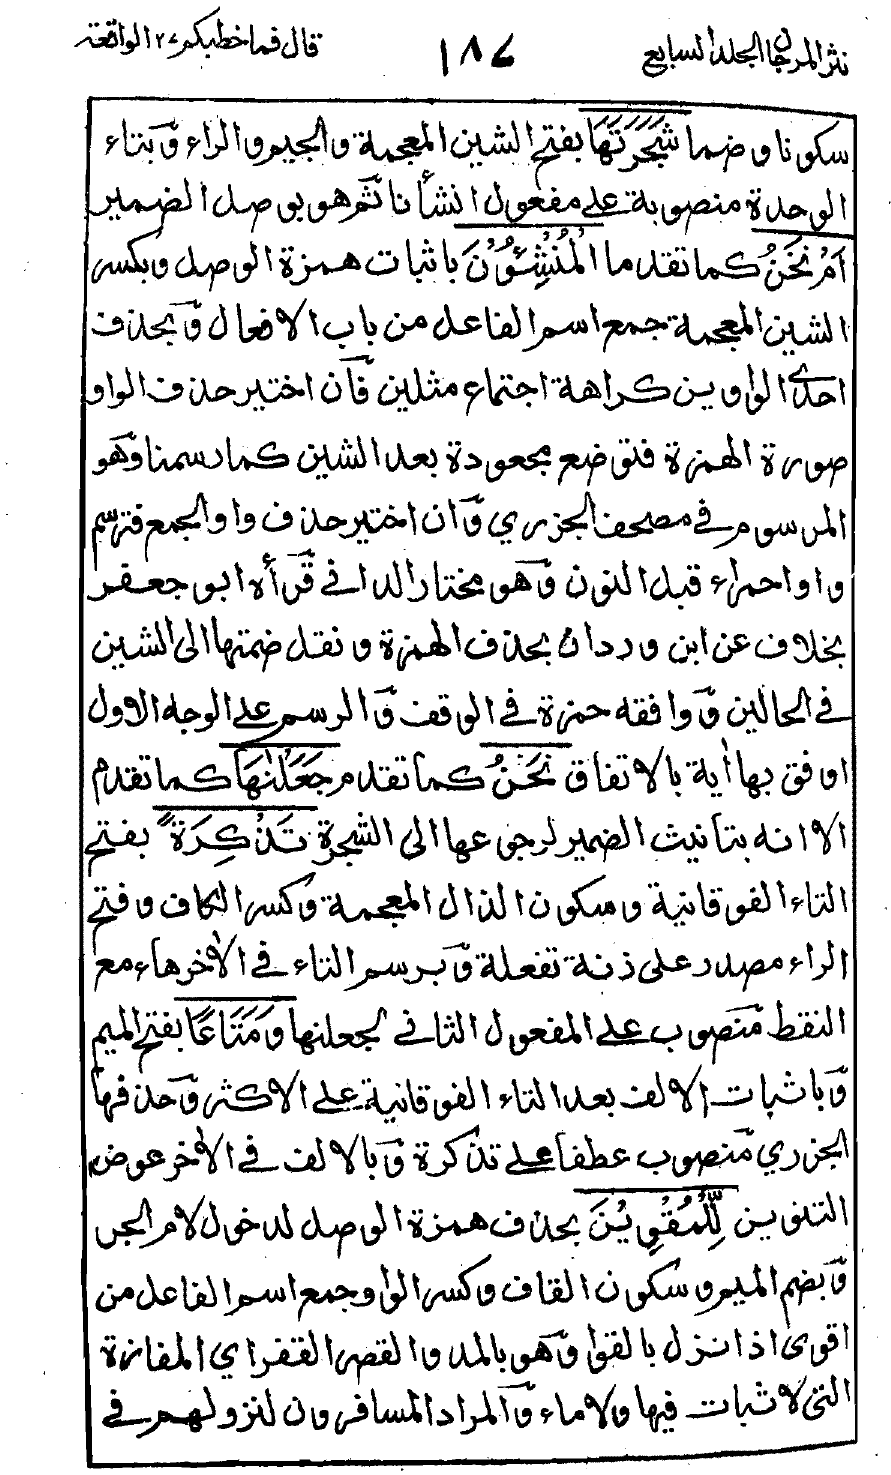 نثر المرجان الجلد السابع
١٨٧
قال فما خطبكم ٢٧ الواقعة
سكونا وضما شَجَرَتَهَا بفتح الشين المعجمة والجيم والراء وبتاء
الوحدة منصوبة على مفعول انشأنا ثم هو بوصل الضمير
اَمْ نَحْنُ كما تقدما الْمُنْشِئُوْنَ باثبات همزة الوصل وبكسر
الشين المعجمة جمع اسم الفاعل من باب الافعال وبحذف
احدى الواوين كراهة اجتماع مثلين فان اختير حذف الواو
صورة الهمزة فتوضع مجعودة بعد الشين كما رسمنا وهو
المرسوم في مصحف الجزري وان اختير حذف واو الجمع فترسم
واوا حمراء قبل النون وهو مختار الداني قرأه ابو جعفر
بخلاف عن ابن وردان بحذف الهمزة ونقل ضمتها الى الشين
في الحالين ووافقه حمزة في الوقف والرسم على الوجه الاول
اوفق بها أية بالاتفاق نَحْنُ كما تقدم جَعَلْنٰهَا كما تقدم
الا انه بتأنيث الضمير لرجوعها الى الشجرة تَذْكِرَةً بفتح
التاء الفوقانية وسكون الذال المعجمة وكسر الكاف وفتح
الراء مصدر على زنة تفعلة وبرسم التاء في الأخر هاء مع
النقط منصوب على المفعول الثاني لجعلنها وَمَتَاعًا بفتح الميم
وباثبات الالف بعد التاء الفوقانية على الاكثر وحذفها
الجزري منصوب عطفا على تذكرة وبالالف في الأخر عوض
التنوين لِّلْمُقْوِيْنَ بحذف همزة الوصل لدخول لام الجر
وبضم الميم وسكون القاف وكسر الواو جمع اسم الفاعل من
اقوى اذا نزل بالقوا وهو بالمد والقصر القفر اي المفازة
التي لا ثبات فيها ولا ماء والمراد المسافرون لنزولهم في